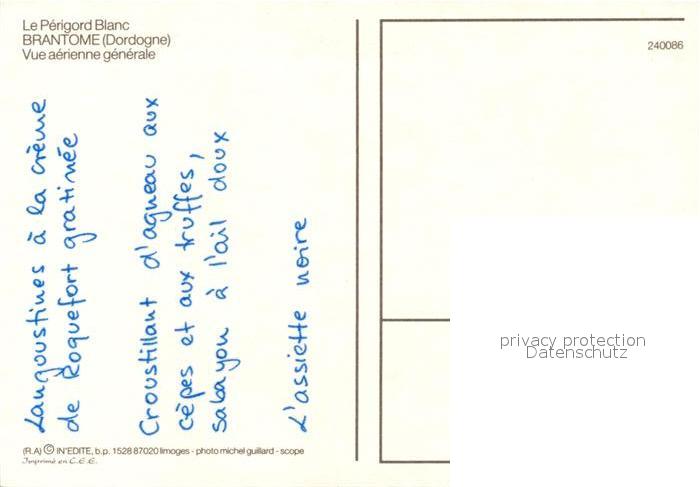 Le Périgord Blanc
BRANTOME (Dordogne)
Vue aérienne générale
240086
Langoustines à la crème
de Roquefort gratinée
Croustillant d'agneau aux
cèpes et aux truffes,
sabayon à l'ail doux
L'assiette noire
privacy protection
Datenschutz
(R.A) © IN'EDITE, b.p. 1528 87020 limoges - photo michel guillard - scope
Imprimé en C.E.E.